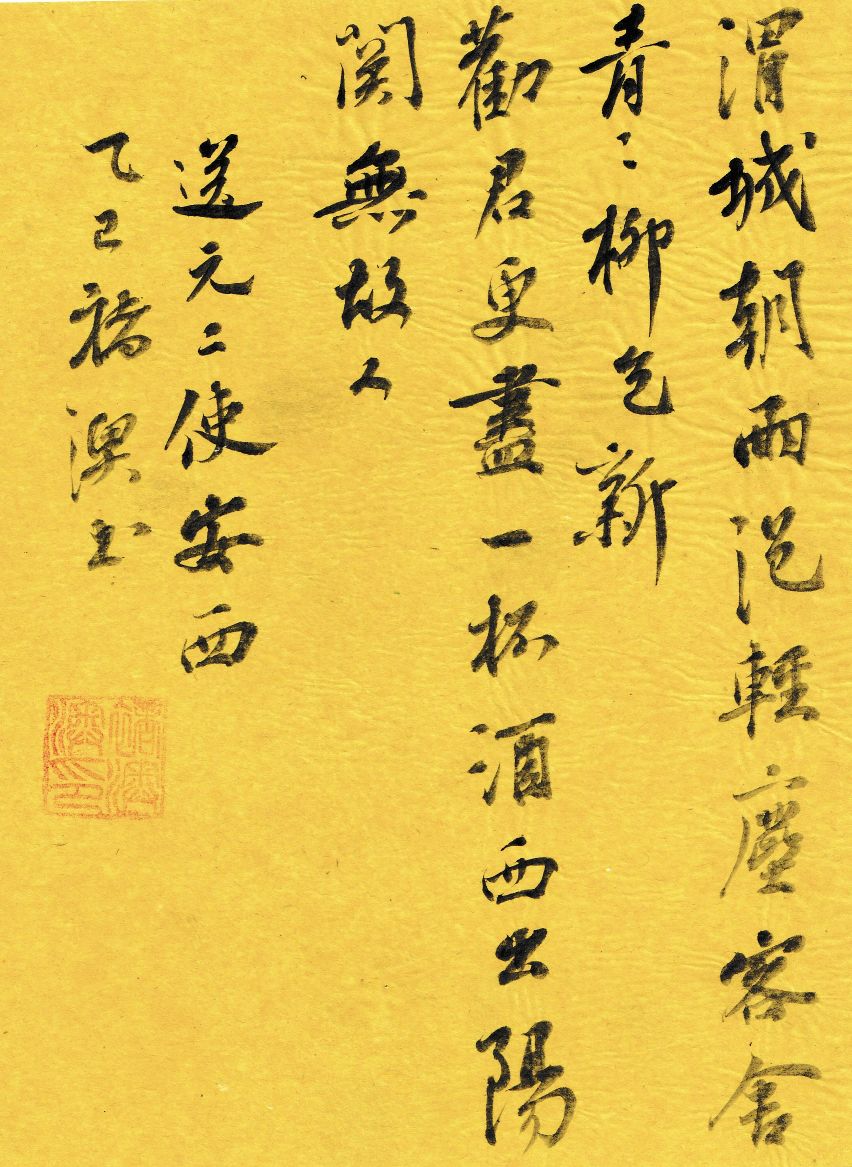 渭城朝雨浥輕塵客舍
青〻柳色新
勸君更盡一杯酒西出陽
関無故人
送元二使安西
乙巳 书